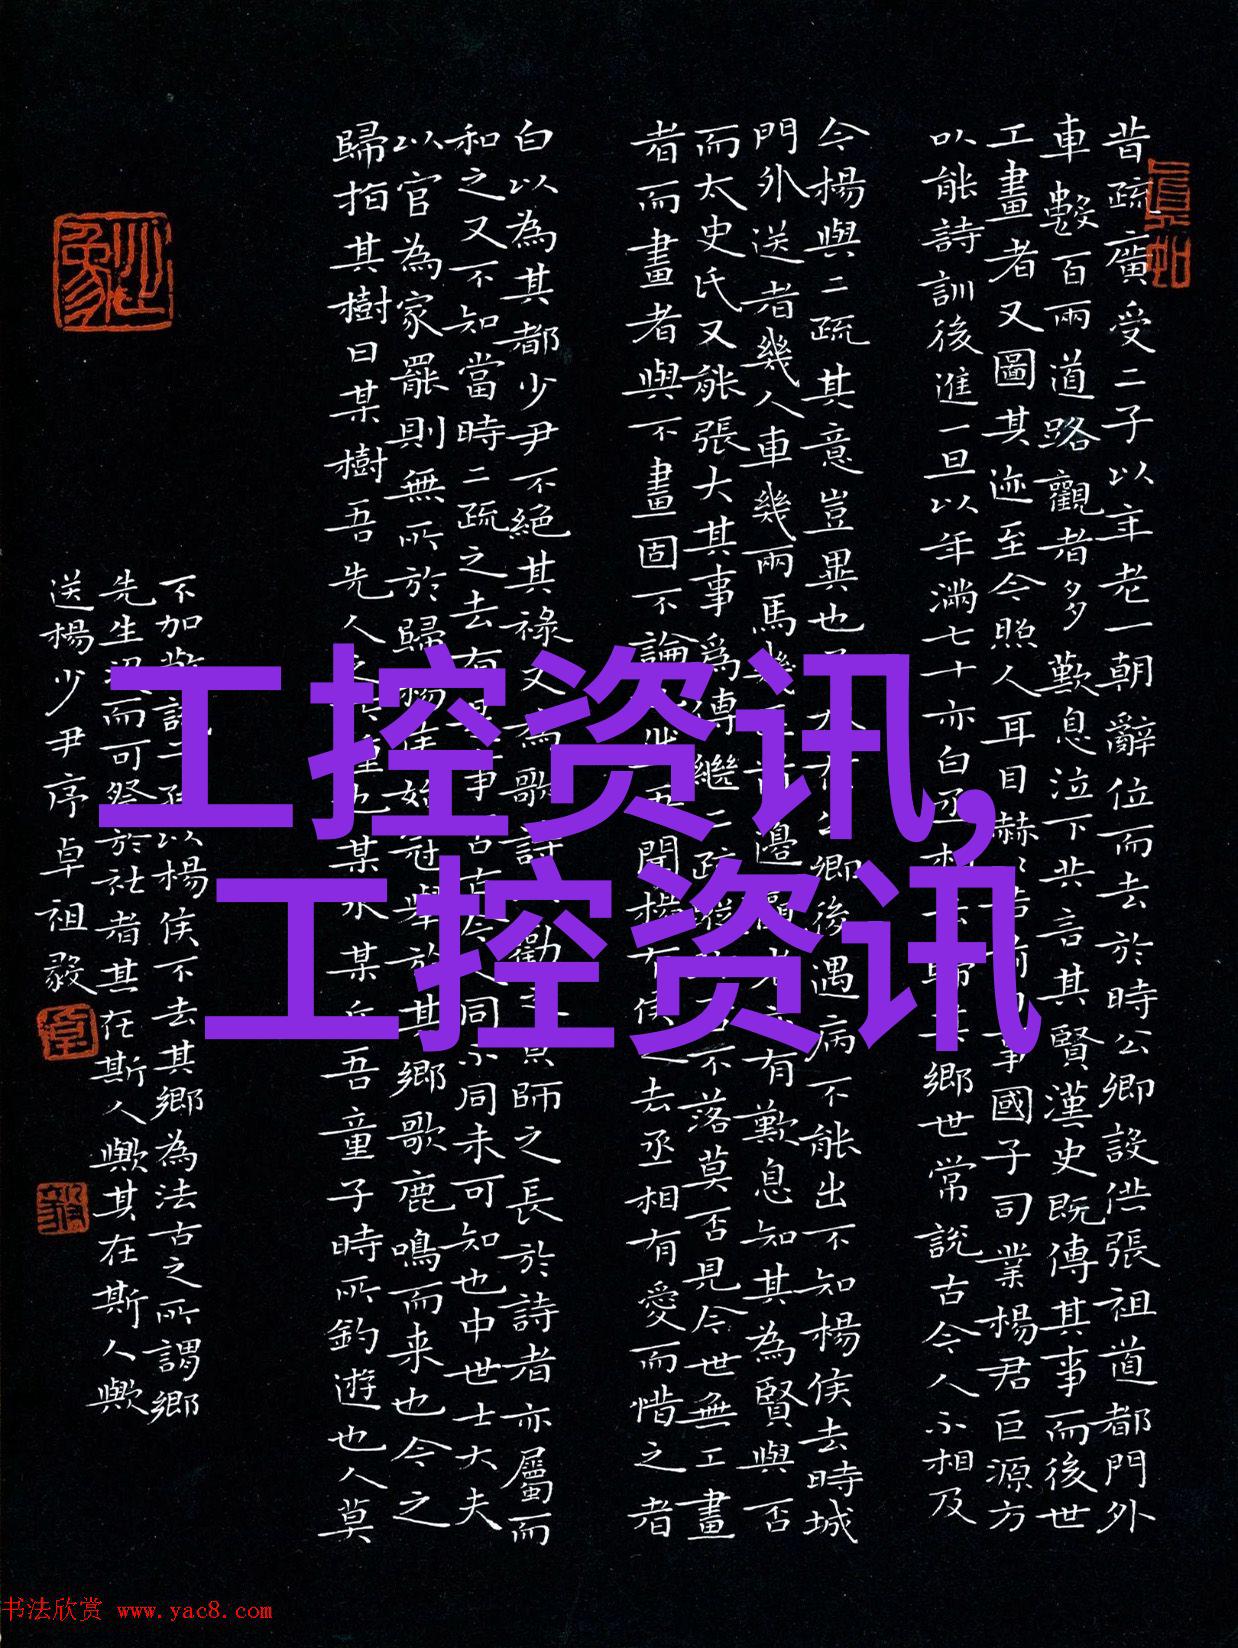 昔疏廣受二子以年老一朝辭位而去於時公卿設供張祖道都門外
車數百兩道路觀者多歎息泣下共言其賢漢史既傳其事而後世
工畫者又圖其迹至今照人耳目赫事國子司業楊君巨源方
以能詩訓後進一旦以年滿七十亦白丞相去歸其鄉世常說古今人不相及
今楊與二疏其意豈異也公卿後遇病不能出不知楊侯去時城
門外送者幾人車幾兩馬幾邊有歎息知其為賢與否
而太史氏又能張大其事為傳繼二疏不落莫否見今世無工畫
者而畫者與不畫固不論吾聞楊侯之去丞相有愛而惜之者
白以為其都少尹不絕其祿又為歌詩勸之京師之長於詩者亦屬而
和之又不知當時二疏之去有是事否古今人同不同未可知也中世士大夫
以官為家罷則無所於歸楊侯始冠舉於其鄉歌鹿鳴而来也今之
歸指其樹曰某樹吾先人之種也某水某丘吾童子時所釣遊也人莫
不加敬誡子孫以楊侯不去其鄉為法古之所謂鄉
先生沒而可祭於社者其在斯人歟其在斯人歟
送楊少尹序卓祖毅
工控资讯,
工控资讯
书法欣赏 www.yac8.com